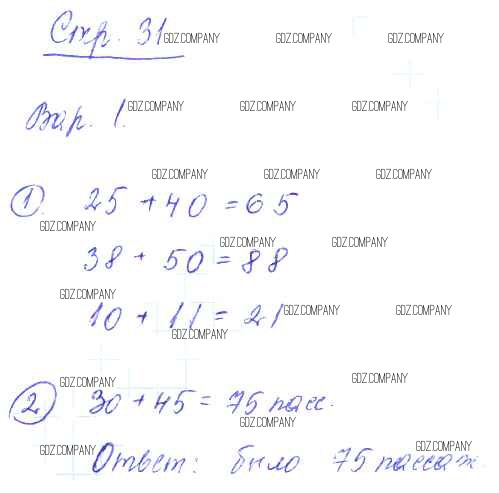 Стр. 31
GDZ.COMPANY GDZ.COMPANY GDZ.COMPANY
Вар. 1.
GDZ.COMPANY GDZ.COMPANY GDZ.COMPANY
GDZ.COMPANY GDZ.COMPANY GDZ.COMPANY
1. 25 + 40 = 65
GDZ.COMPANY
GDZ.COMPANY GDZ.COMPANY
38 + 50 = 88
GDZ.COMPANY
10 + 11 = 21
GDZ.COMPANY GDZ.COMPANY
GDZ.COMPANY
GDZ.COMPANY GDZ.COMPANY
2 30 + 45 = 75 пасс.
GDZ.COMPANY
GDZ.COMPANY GDZ.COMPANY
Ответ: было 75 пассаж.